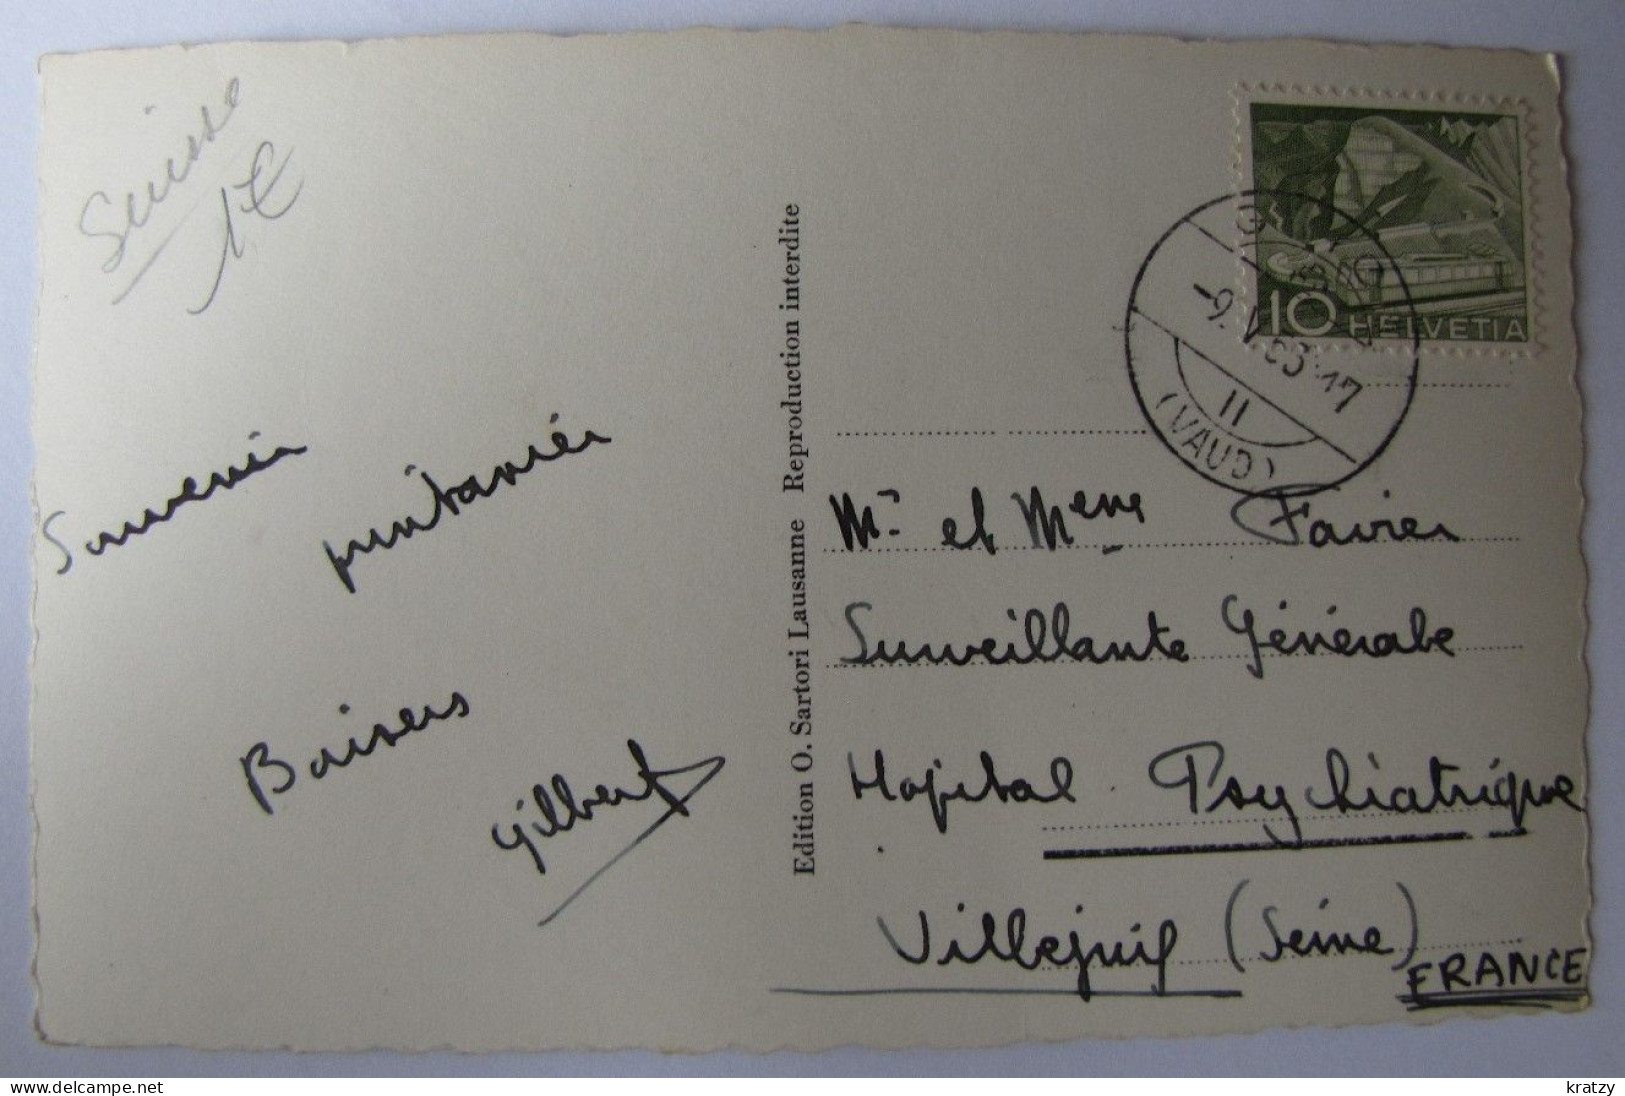 Suisse
1€
Souvenir printanier
Baisers
Gilbert
Edition O. Sartori Lausanne Reproduction interdite
10 HELVETIA
II
(VAUD)
Mr et Mme Favier
Surveillante Générale
Hôpital Psychiatrique
Villejuif (Seine)
FRANCE
delcampe.net
kratzy